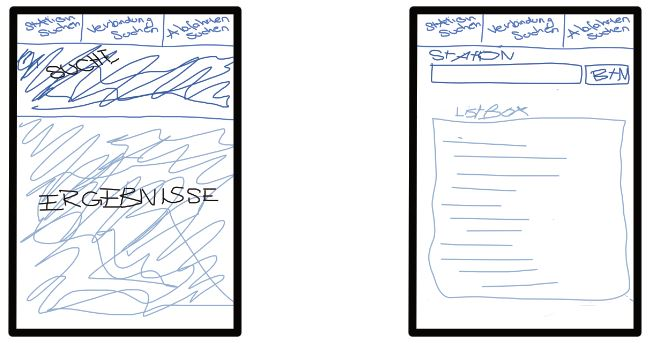 Station Suchen
Verbindung Suchen
Abfahrten Suchen
SUCHE
ERGEBNISSE
Station Suchen
Verbindung Suchen
Abfahrten Suchen
STATION
BTN
ListBox